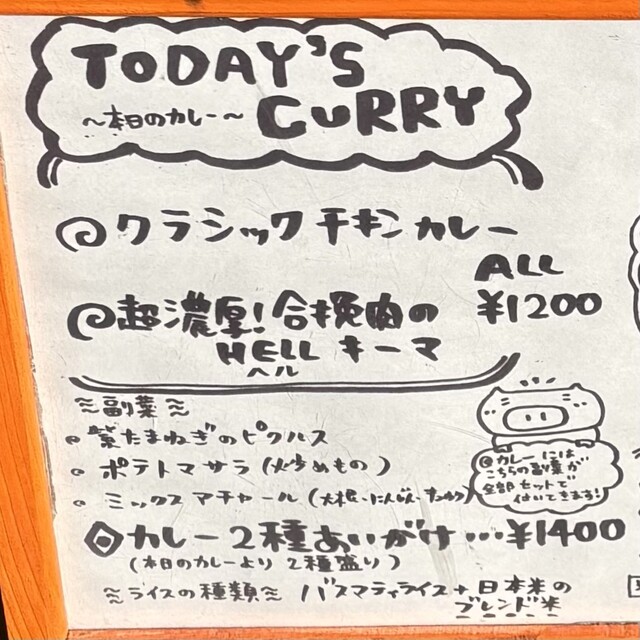 TODAY'S
〜本日のカレー〜 CURRY
クラシックチキンカレー
ALL
¥1200
超濃厚!合挽肉の
HELL キーマ
ヘル
〜副菜〜
紫たまねぎのピクルス
ポテトマサラ(炒めもの)
ミックスアチャール(大根・にんじん・きゅうり)
◎カレーには
こちらの副菜が
全部セットで
付いてきます!
カレー2種あいがけ…¥1400
(本日のカレーより2種盛り)
〜ライスの種類〜 バスマティライス+日本米の
ブレンド米